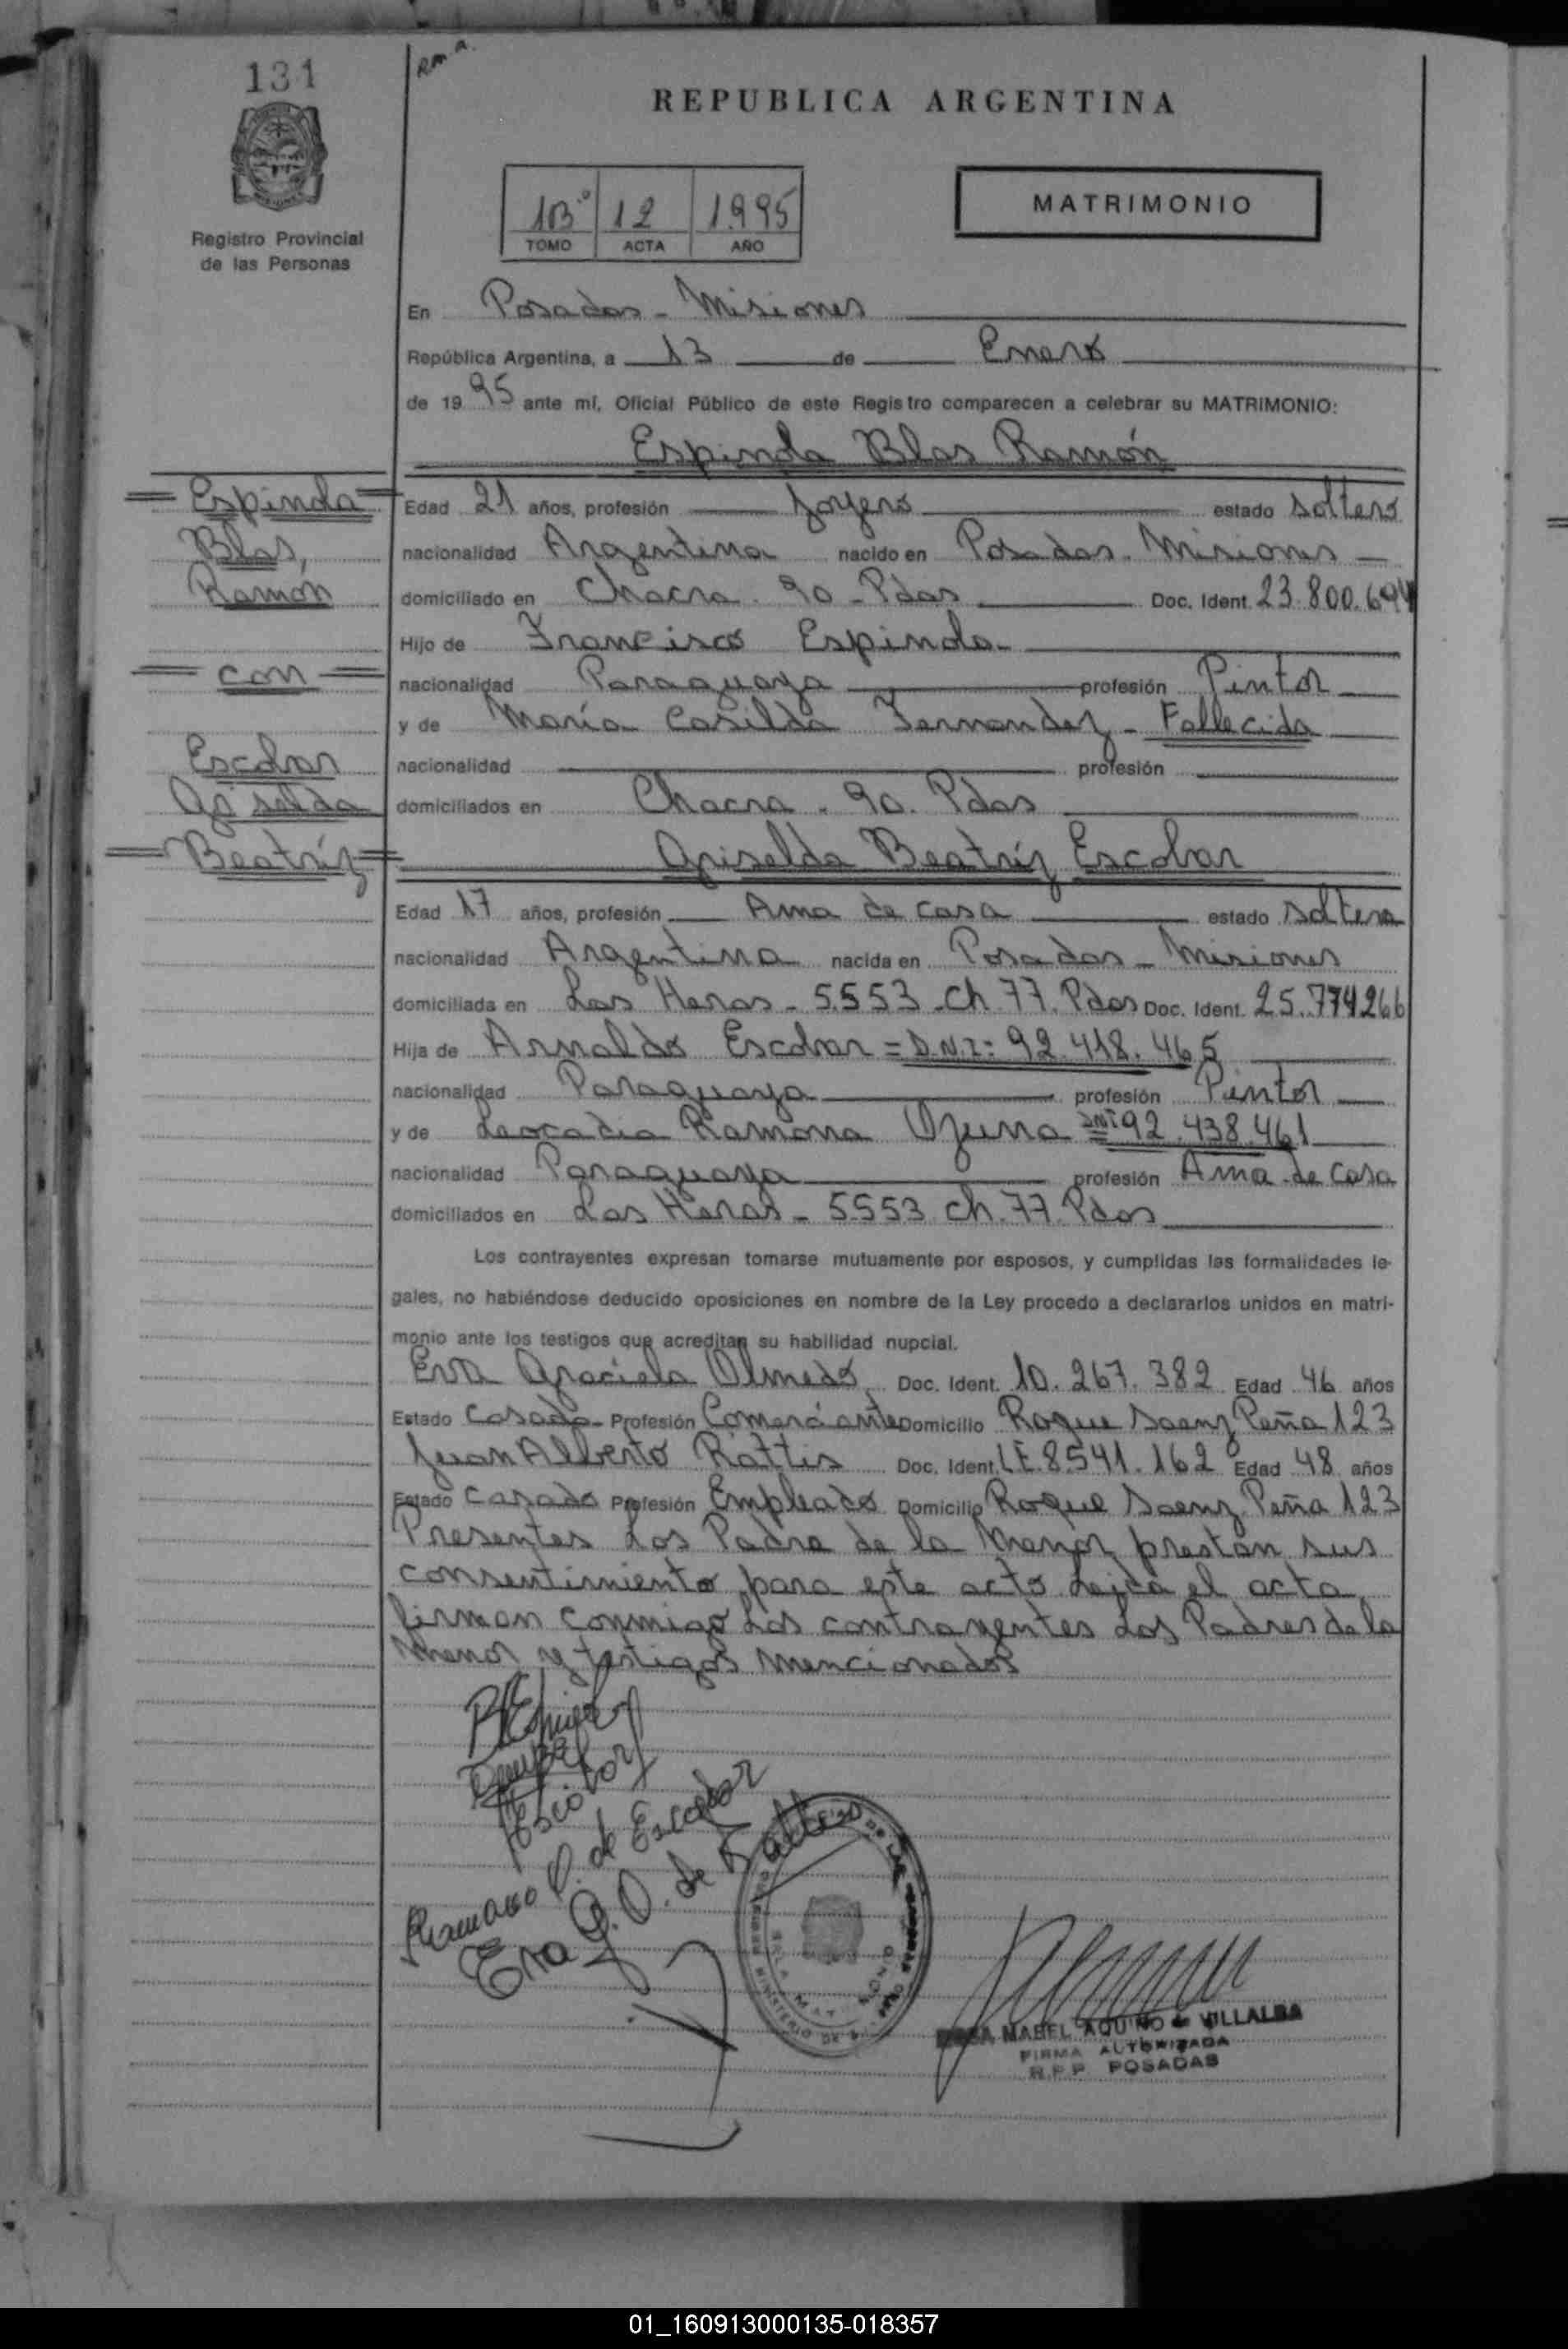 131
Rm.a.
REPUBLICA ARGENTINA
Registro Provincial
de las Personas
1B° 12 1995
TOMO ACTA AÑO
MATRIMONIO
En Posadas - Misiones
República Argentina, a 13 de Enero
de 1995 ante mí, Oficial Público de este Registro comparecen a celebrar su MATRIMONIO:
Espindola Blas Ramón
Espindola
Blas,
Ramón
con
Escobar
Griselda
Beatríz
Edad 21 años, profesión Joyero estado soltero
nacionalidad Argentina nacido en Posadas - Misiones
domiciliado en Chacra. 90 - Pdas Doc. Ident. 23.800.694
Hijo de Francisco Espindola
nacionalidad Paraguaya profesión Pintor
y de María Casilda Fernandez - Fallecida
nacionalidad profesión
domiciliados en Chacra. 90. Pdas
Griselda Beatríz Escobar
Edad 17 años, profesión Ama de casa estado soltera
nacionalidad Argentina nacida en Posadas - Misiones
domiciliada en Las Heras - 5553 - Ch. 77. Pdas Doc. Ident. 25.774266
Hija de Arnaldo Escobar = D.N.I: 92.418.465
nacionalidad Paraguaya profesión Pintor
y de Leocadia Ramona Ozuna DNI 92.438.461
nacionalidad Paraguaya profesión Ama de casa
domiciliados en Las Heras - 5553 ch. 77. Pdas
Los contrayentes expresan tomarse mutuamente por esposos, y cumplidas las formalidades le-
gales, no habiéndose deducido oposiciones en nombre de la Ley procedo a declararlos unidos en matri-
monio ante los testigos que acreditan su habilidad nupcial.
Eva Graciela Olmedo Doc. Ident. 10.267.382 Edad 46 años
Estado Casada Profesión Comerciante Domicilio Roque Saenz Peña 123
Juan Alberto Rattis Doc. Ident. LE.8541.162 Edad 48 años
Estado Casado Profesión Empleado Domicilio Roque Saenz Peña 123
Presentes Los Padre de la Menor, prestan sus
consentimiento para este acto Leida el acta
firman conmigo Los contrayentes Los Padres de la
Menor y testigos Mencionados
Escobar
de Escobar
Eva G. O. de Rattis
MABEL AQUINO de VILLALBA
FIRMA AUTORIZADA
R.P.P. POSADAS
01_160913000135-018357